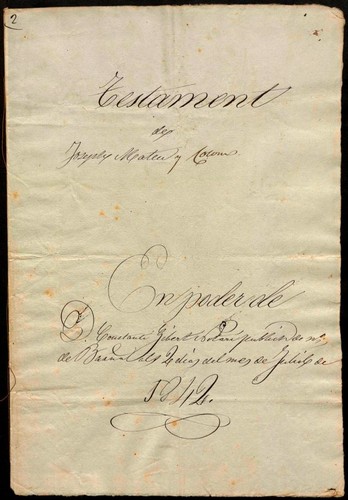 2
Testament
de
Joseph Mateu y
En poder de
Constantí Gibert Notari public de nº
de Barna als 4 dias del mes de Juliol de
1842.